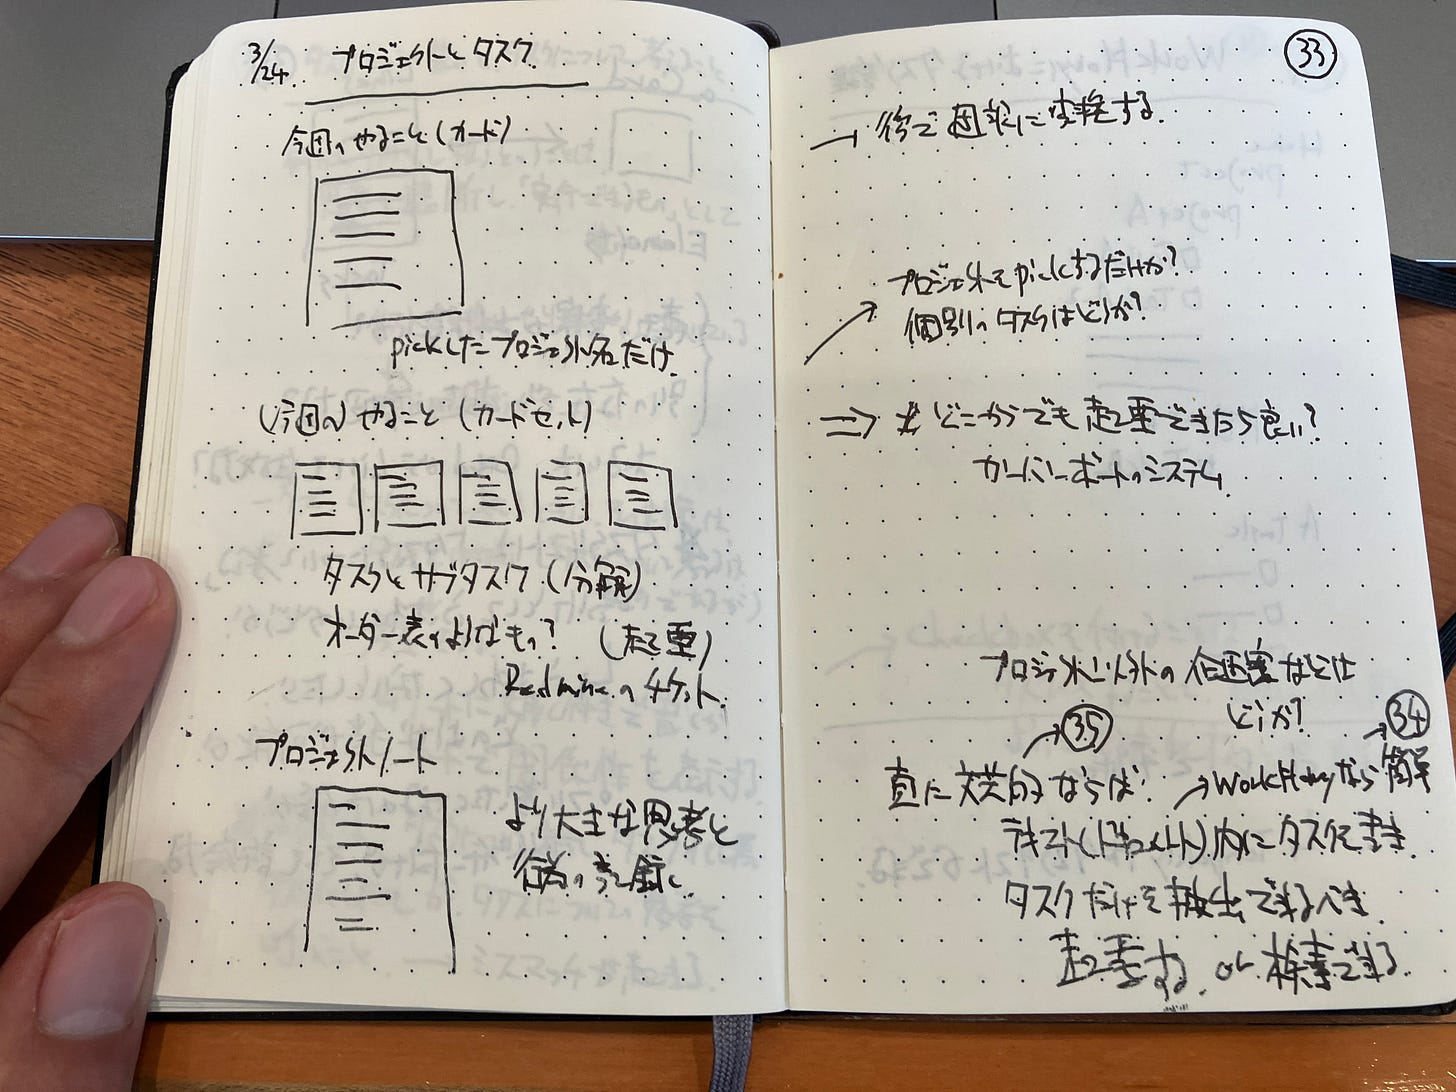 3/24 プロジェクトとタスク
今週のやること(カード)
pickしたプロジェクト名だけ
(今週の)やること(カードセット)
タスクとサブタスク(分解)
オーダー表のようなもの?(起票)
Redmineのチケット
プロジェクトノート
より大きな思考と
行為の記録
33
→ 後で週報に変移する
プロジェクトをpickするだけか?
個別のタスクはどうか?
⇒ どこからでも起票できたら良い?
カンバンボードのシステム
プロジェクト以外の企画案などは
どうか?
→35 →34
真に文芸的ならば? →WorkFlowyなら簡単
テキスト(ドキュメント)内にタスクを書き
タスクだけを抽出できるべき
起票する or 検索できる